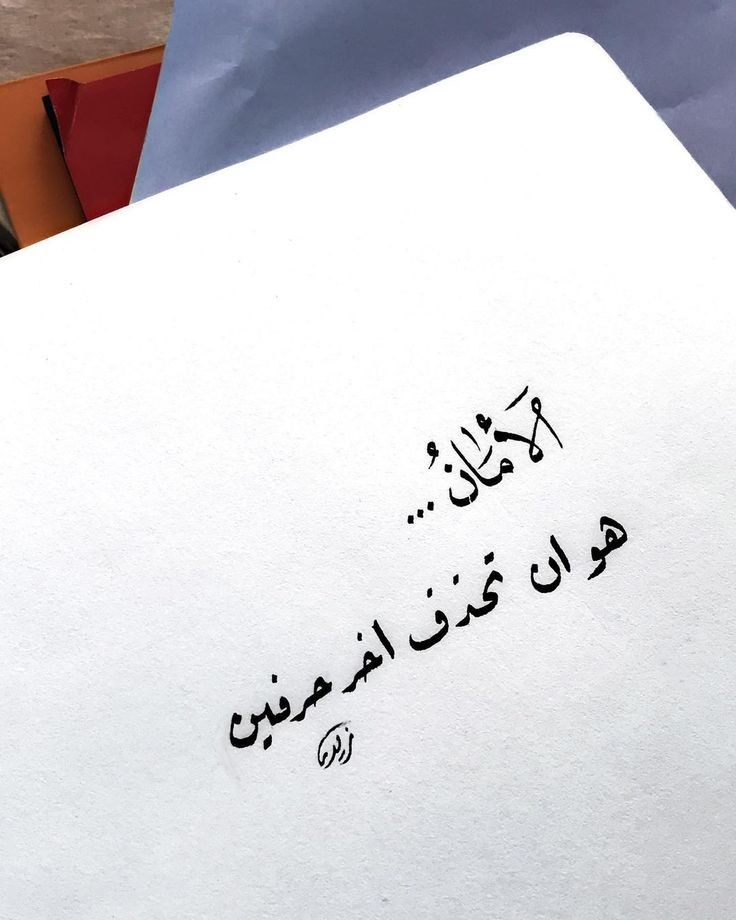 الأَمَانُ...
هو ان تحذف اخر حرفين